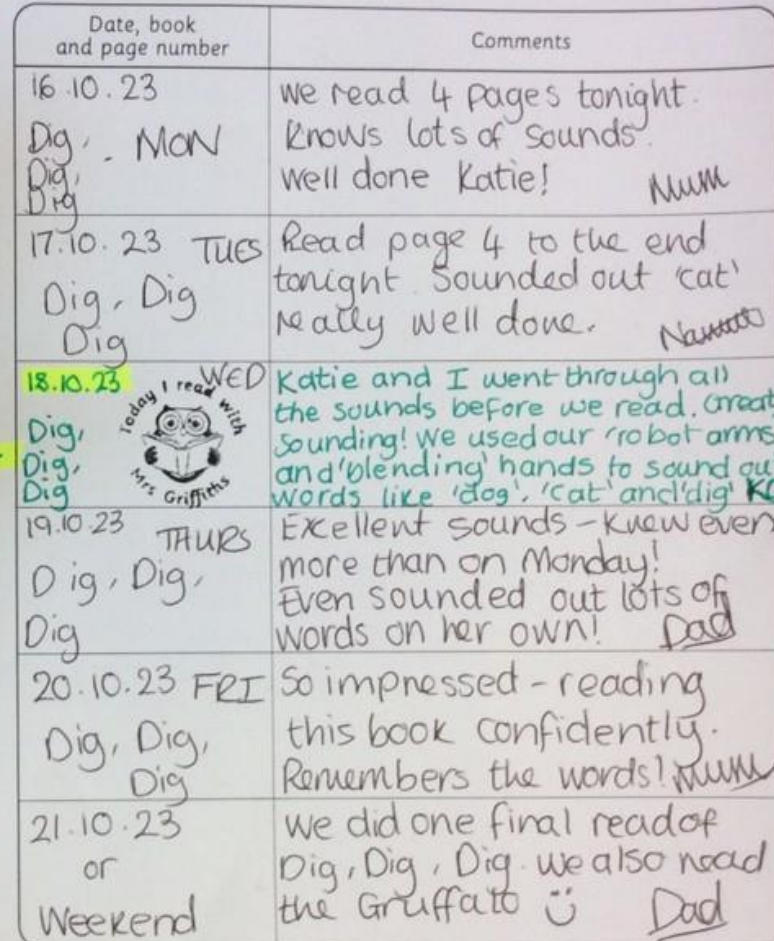 Date, book
and page number
Comments
16.10.23
Dig, . MON
Dig,
Dig
we read 4 pages tonight.
Knows lots of sounds.
Well done Katie!
Mum
17.10.23 TUES
Dig, Dig
Dig
Read page 4 to the end
tonight. Sounded out 'cat'
really well done.
18.10.23 WED
Dig,
Dig,
Dig
Today I read with
Mrs Griffiths
Katie and I went through all
the sounds before we read. Great
sounding! We used our 'robot arms
and 'blending' hands to sound ou
words like 'dog', 'cat' and 'dig'
19.10.23
THURS
Dig, Dig,
Dig
Excellent sounds - knew even
more than on Monday!
Even sounded out lots of
words on her own! Dad
20.10.23 FRI
Dig, Dig,
Dig
So impressed - reading
this book confidently.
Remembers the words! Mum
21.10.23
or
Weekend
we did one final read of
Dig, Dig, Dig. we also read
the Gruffalo
Dad